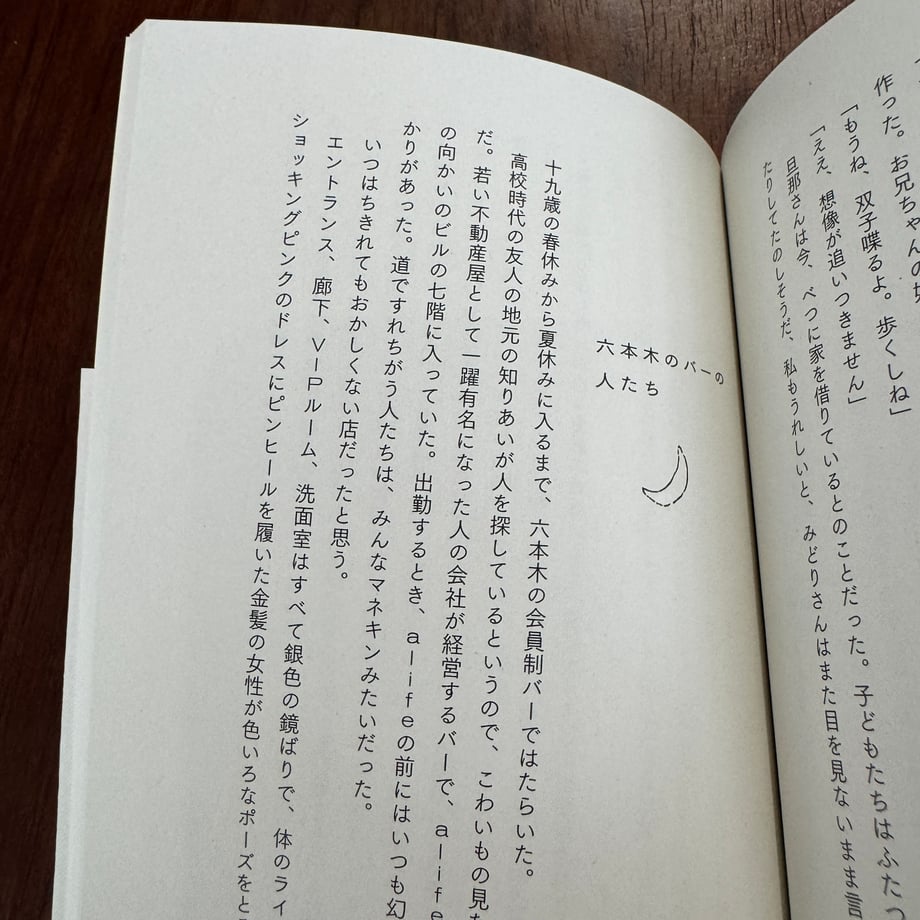 作った。お兄ちゃんの
「もうね、双子喋るよ。歩くしね」
「ええ、想像が追いつきません」
旦那さんは今、べつに家を借りているとのことだった。子どもたちはふたつ
たりしてたのしそうだ、私もうれしいと、みどりさんはまた目を見ないまま言
六本木のバーの
人たち
十九歳の春休みから夏休みに入るまで、六本木の会員制バーではたらいた。
高校時代の友人の地元の知りあいが人を探しているというので、こわいもの見た
だ。若い不動産屋として一躍有名になった人の会社が経営するバーで、alife
の向かいのビルの七階に入っていた。出勤するとき、alifeの前にはいつも幻
かりがあった。道ですれちがう人たちは、みんなマネキンみたいだった。
いつはちきれてもおかしくない店だったと思う。
エントランス、廊下、VIPルーム、洗面室はすべて銀色の鏡ばりで、体のライ
ショッキングピンクのドレスにピンヒールを履いた金髪の女性が色いろなポーズをと